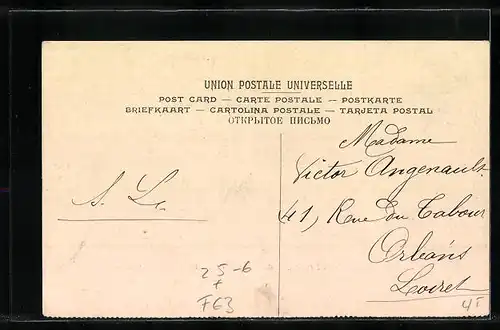 UNION POSTALE UNIVERSELLE
POST CARD — CARTE POSTALE — POSTKARTE
BRIEFKAART — CARTOLINA POSTALE — TARJETA POSTAL
ОТКРЫТОЕ ПИСЬМО
Madame
Victor Angenault
41, Rue du Tabour
Orléans
Loiret
25-6
+
F63